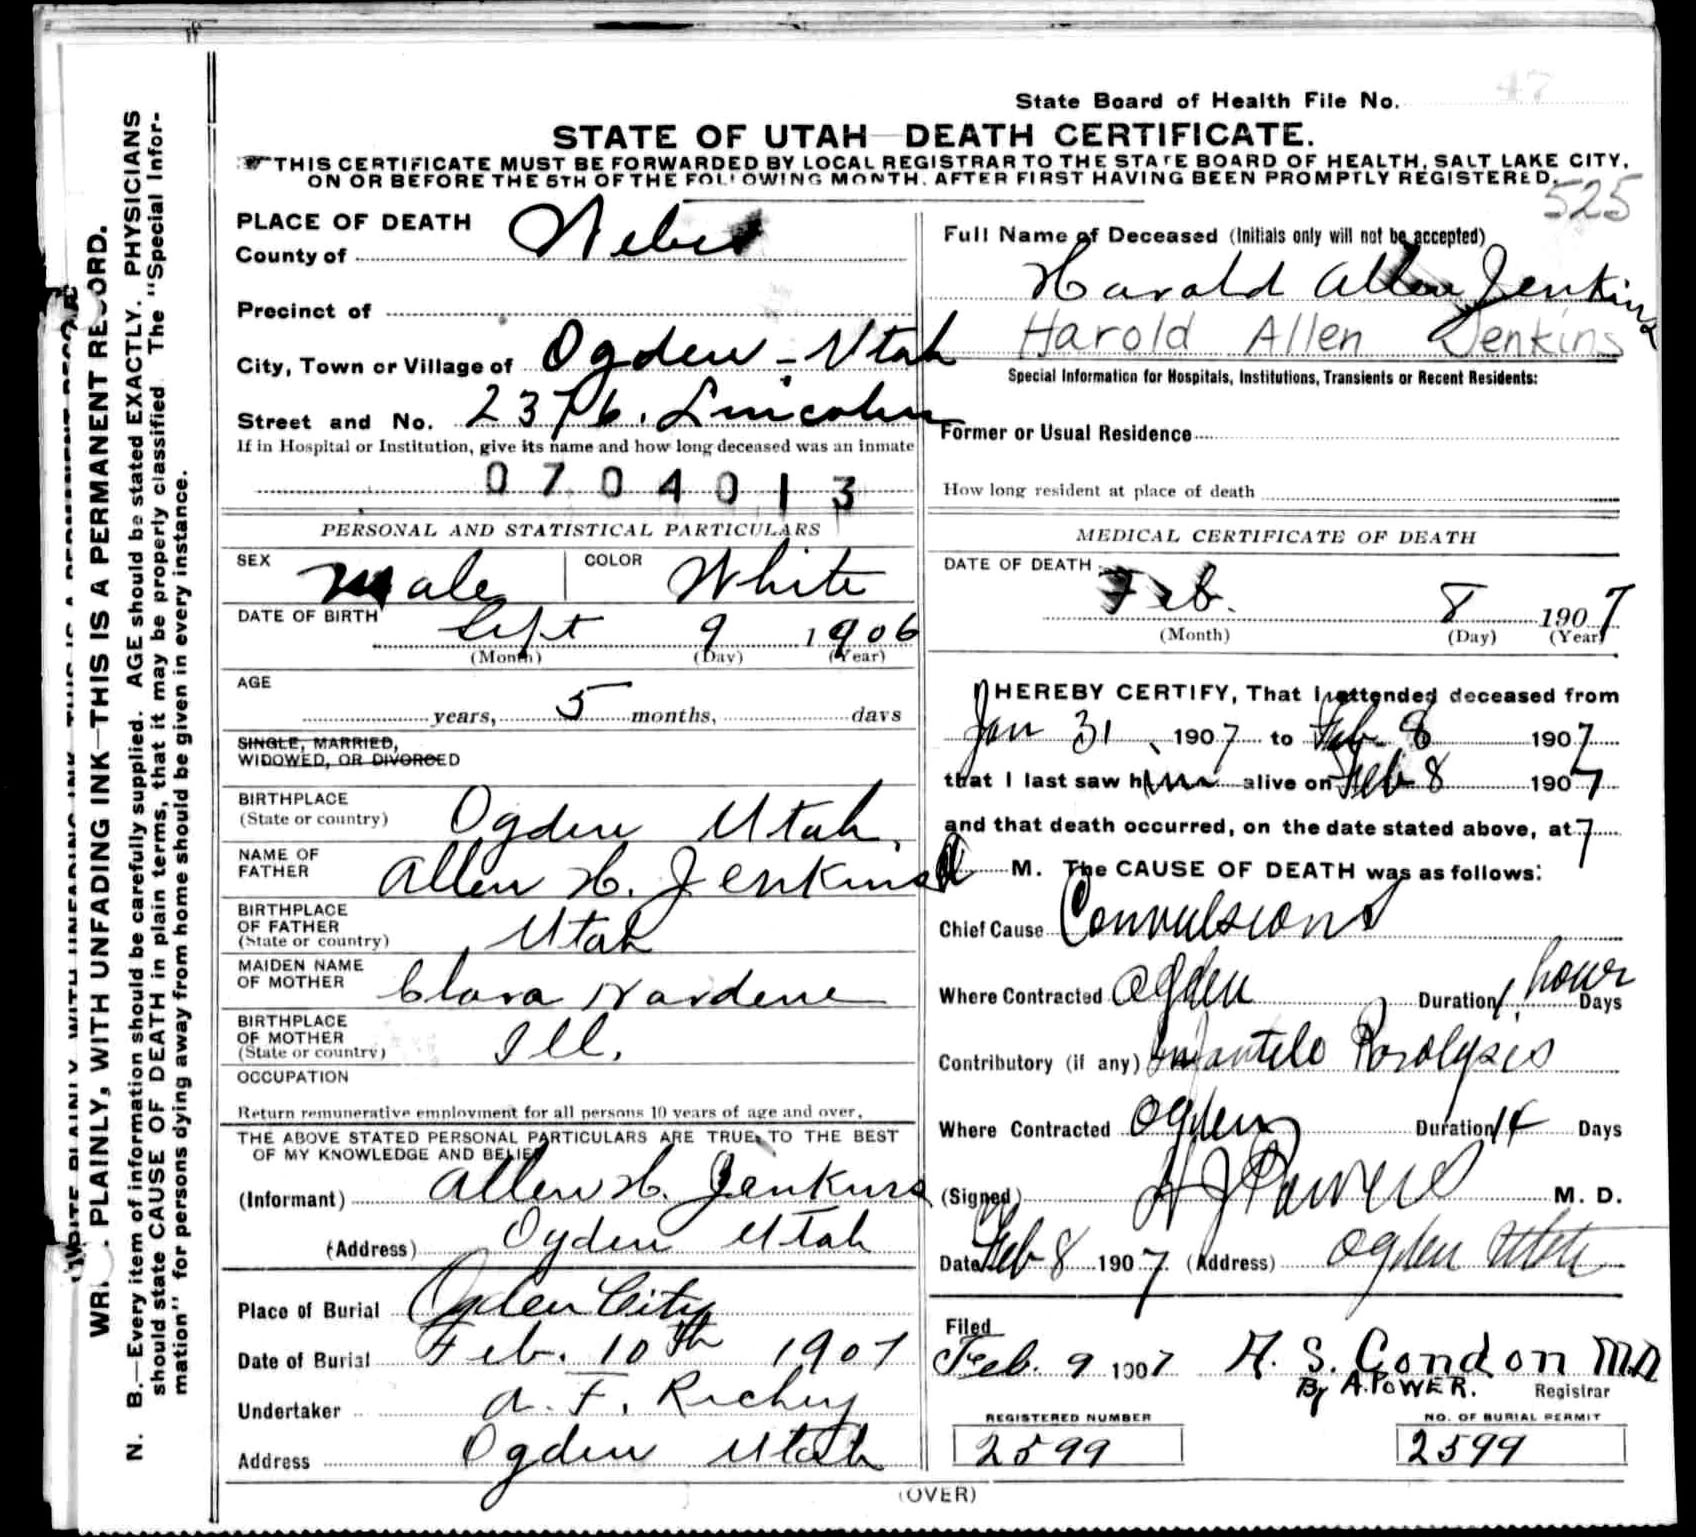 State Board of Health File No. 47
STATE OF UTAH—DEATH CERTIFICATE.
THIS CERTIFICATE MUST BE FORWARDED BY LOCAL REGISTRAR TO THE STATE BOARD OF HEALTH, SALT LAKE CITY,
ON OR BEFORE THE 5TH OF THE FOLLOWING MONTH, AFTER FIRST HAVING BEEN PROMPTLY REGISTERED.
525
PLACE OF DEATH
County of Weber
Precinct of
City, Town or Village of Ogden - Utah
Street and No. 2376. Lincoln
If in Hospital or Institution, give its name and how long deceased was an inmate
0704013
PERSONAL AND STATISTICAL PARTICULARS
SEX Male COLOR White
DATE OF BIRTH Sept 9 1906
(Month) (Day) (Year)
AGE
years, 5 months, days
SINGLE, MARRIED,
WIDOWED, OR DIVORCED
BIRTHPLACE
(State or country) Ogden Utah.
NAME OF
FATHER Allen H. Jenkins
BIRTHPLACE
OF FATHER
(State or country) Utah
MAIDEN NAME
OF MOTHER Clara Nardene
BIRTHPLACE
OF MOTHER
(State or country) Ill.
OCCUPATION
Return remunerative employment for all persons 10 years of age and over.
THE ABOVE STATED PERSONAL PARTICULARS ARE TRUE TO THE BEST
OF MY KNOWLEDGE AND BELIEF
(Informant) Allen H. Jenkins
(Address) Ogden Utah
Place of Burial Ogden City
Date of Burial Feb. 10th 1907
Undertaker A. F. Richey
Address Ogden Utah
Full Name of Deceased (Initials only will not be accepted)
Harold Allen Jenkins
Harold Allen Jenkins
Special Information for Hospitals, Institutions, Transients or Recent Residents:
Former or Usual Residence
How long resident at place of death
MEDICAL CERTIFICATE OF DEATH
DATE OF DEATH
Feb. 8 1907
(Month) (Day) (Year)
I HEREBY CERTIFY, That I attended deceased from
Jan 31, 1907 to Feb 8 1907
that I last saw him alive on Feb 8 1907
and that death occurred, on the date stated above, at 7
A M. The CAUSE OF DEATH was as follows:
Chief Cause Convulsions
Where Contracted Ogden Duration 1 hour Days
Contributory (if any) Infantile Paralysis
Where Contracted Ogden Duration 14 Days
(Signed) H J Powers M. D.
Date Feb 8 1907 (Address) Ogden Utah
Filed
Feb. 9 1907 H. S. Condon M.D
By A. POWER. Registrar
REGISTERED NUMBER NO. OF BURIAL PERMIT
2599 2599
(OVER)
WRITE PLAINLY, WITH UNFADING INK—THIS IS A PERMANENT RECORD.
N. B.—Every item of information should be carefully supplied. AGE should be stated EXACTLY. PHYSICIANS
should state CAUSE OF DEATH in plain terms, that it may be properly classified. The "Special Infor-
mation" for persons dying away from home should be given in every instance.